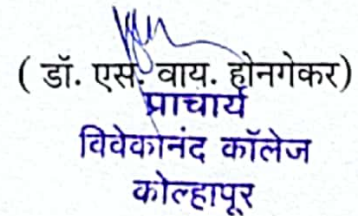 ( डॉ. एस. वाय. होनगेकर)
प्राचार्य
विवेकानंद कॉलेज
कोल्हापूर